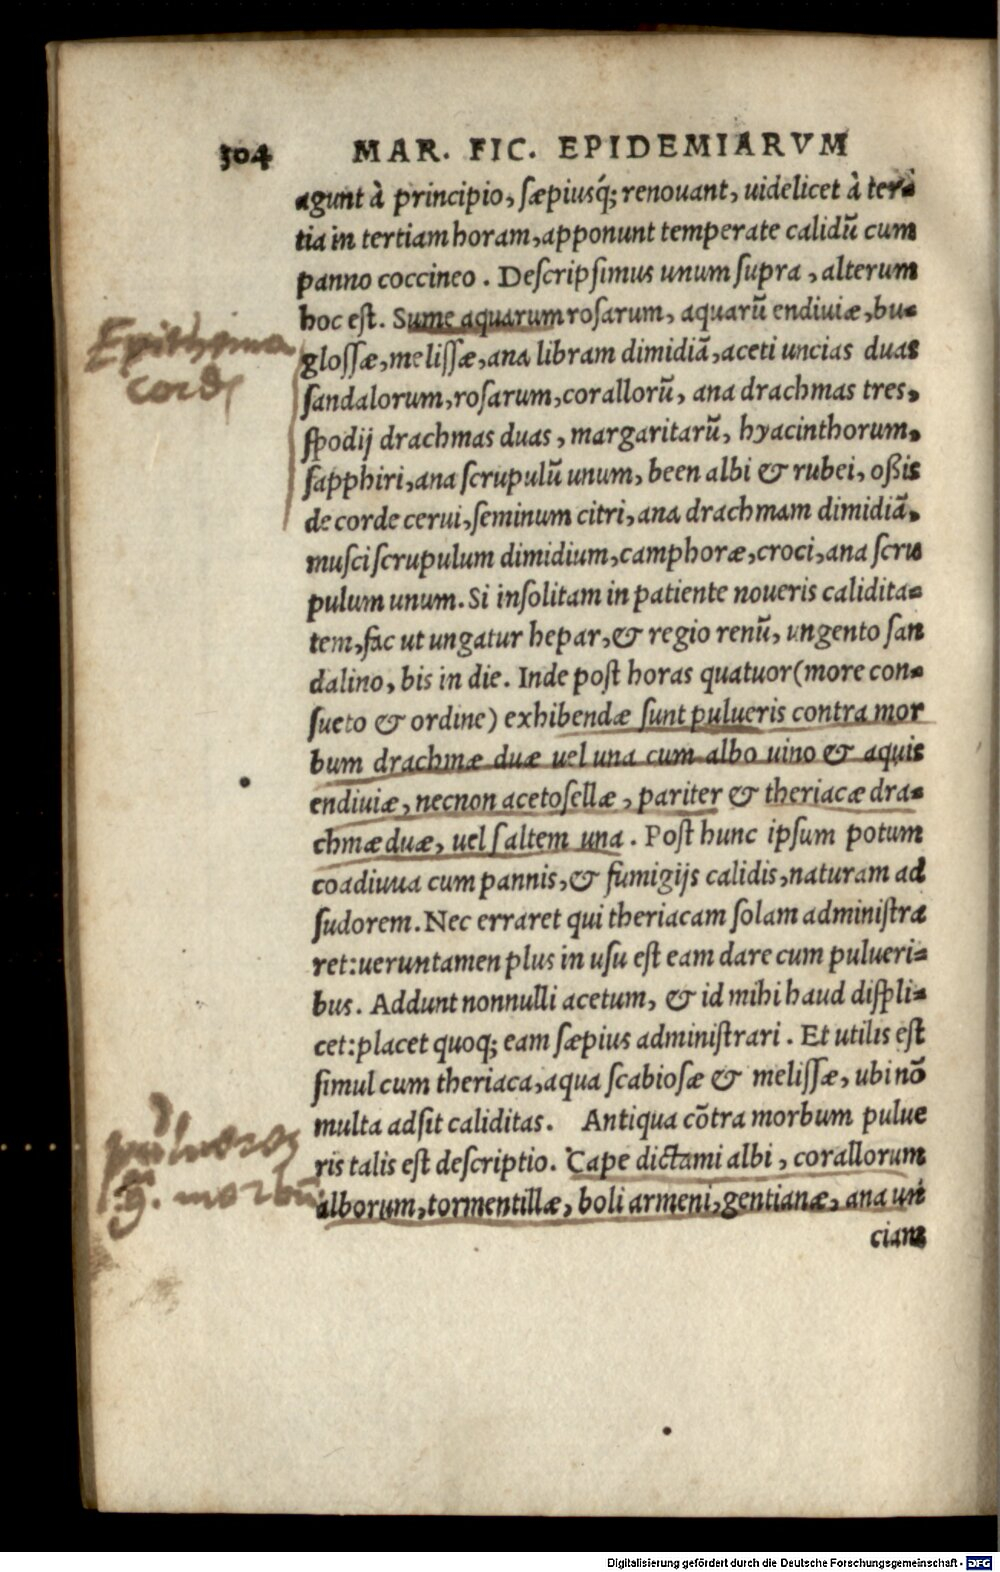 304 MAR. FIC. EPIDEMIARVM
agunt à principio, sæpiusq́; renouant, uidelicet à ter-
tia in tertiam horam, apponunt temperate calidū cum
panno coccineo. Descripsimus unum supra, alterum
hoc est. Sume aquarum rosarum, aquarū endiuiæ, bu-
Epithema
glossæ, melissæ, ana libram dimidiā, aceti uncias duas
cord
sandalorum, rosarum, corallorū, ana drachmas tres,
spodij drachmas duas, margaritarū, hyacinthorum,
sapphiri, ana scrupulū unum, been albi & rubei, oßis
de corde cerui, seminum citri, ana drachmam dimidiā,
musci scrupulum dimidium, camphoræ, croci, ana scru
pulum unum. Si insolitam in patiente noueris calidita-
tem, fac ut ungatur hepar, & regio renū, ungento san
dalino, bis in die. Inde post horas quatuor (more con-
sueto & ordine) exhibendæ sunt pulueris contra mor
bum drachmæ duæ uel una cum albo uino & aquis
endiuiæ, necnon acetosellæ, pariter & theriacæ dra-
chmæ duæ, uel saltem una. Post hunc ipsum potum
coadiuua cum pannis, & fumigijs calidis, naturam ad
sudorem. Nec erraret qui theriacam solam administra
ret: ueruntamen plus in usu est eam dare cum pulueri-
bus. Addunt nonnulli acetum, & id mihi haud displi-
cet: placet quoq; eam sæpius administrari. Et utilis est
simul cum theriaca, aqua scabiosæ & melissæ, ubi nō
multa adsit caliditas. Antiqua cōtra morbum pulue
ris talis est descriptio. Cape dictami albi, corallorum
morbū
alborum, tormentillæ, boli armeni, gentianæ, ana un
ciam
Digitalisierung gefördert durch die Deutsche Forschungsgemeinschaft - DFG